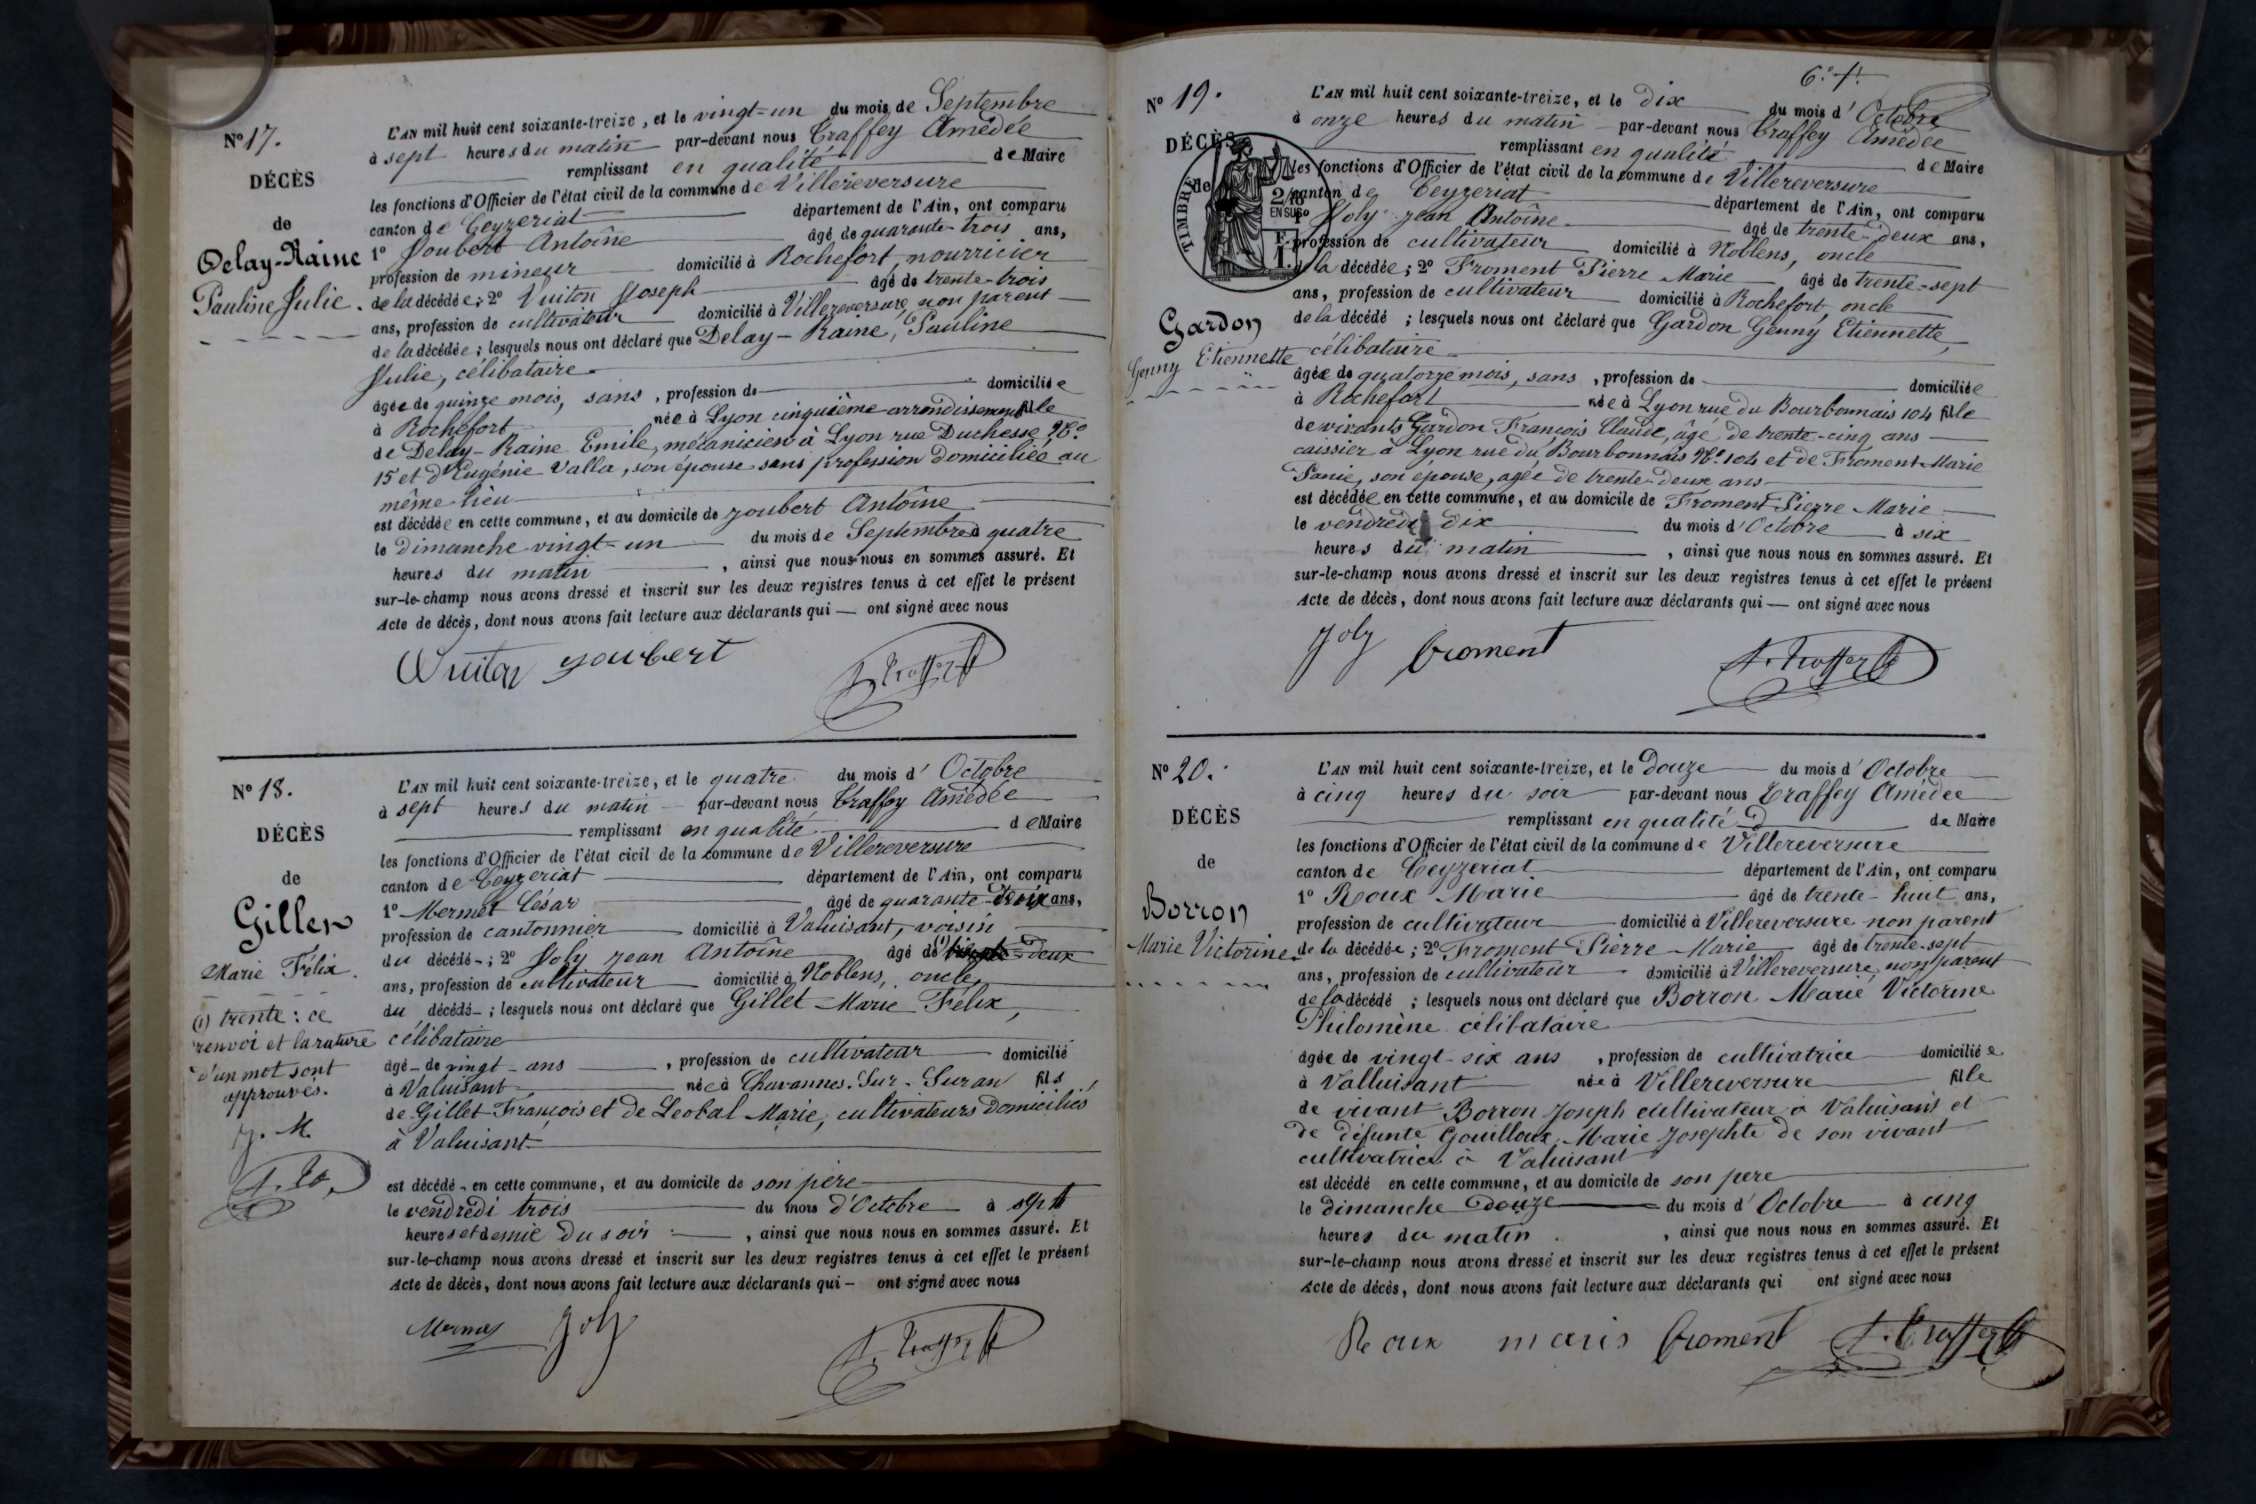 N° 17.
DÉCÈS
de
Delay-Raine
Pauline Julie.
L'AN mil huit cent soixante-treize, et le vingt-un du mois de Septembre
à sept heures du matin par-devant nous Traffey Amédée
remplissant en qualité de Maire
les fonctions d'Officier de l'état civil de la commune de Villereversure
canton de Ceyzeriat département de l'Ain, ont comparu
1° Joubert Antoine âgé de quarante-trois ans,
profession de mineur domicilié à Rochefort, nourricier
de la décédée; 2° Vuiton Joseph âgé de trente-trois
ans, profession de cultivateur domicilié à Villereversure, non parent
de la décédée; lesquels nous ont déclaré que Delay-Raine, Pauline
Julie, célibataire
âgée de quinze mois, sans, profession de domiciliée
à Rochefort née à Lyon cinquième arrondissement fille
de Delay-Raine Emile, mécanicien à Lyon rue Duchesse N°
15 et d'Eugénie Valla, son épouse sans profession domiciliée au
même lieu
est décédée en cette commune, et au domicile de Joubert Antoine
le Dimanche vingt-un du mois de Septembre à quatre
heures du matin, ainsi que nous nous en sommes assuré. Et
sur-le-champ nous avons dressé et inscrit sur les deux registres tenus à cet effet le présent
Acte de décès, dont nous avons fait lecture aux déclarants qui — ont signé avec nous
Vuiton Joubert A. Traffey
N° 18.
DÉCÈS
de
Gillet
Marie Félix.
(1) trente: ce
renvoi et la rature
d'un mot sont
approuvés.
J. M.
L'AN mil huit cent soixante-treize, et le quatre du mois d'Octobre
à sept heures du matin par-devant nous Traffey Amédée
remplissant en qualité de Maire
les fonctions d'Officier de l'état civil de la commune de Villereversure
canton de Ceyzeriat département de l'Ain, ont comparu
1° Mermet César âgé de quarante-trois ans,
profession de cantonnier domicilié à Valuisant, voisin
du décédé; 2° Joly Jean Antoine âgé de (1) vingt-deux
ans, profession de cultivateur domicilié à Noblens, oncle
du décédé; lesquels nous ont déclaré que Gillet Marie Félix,
célibataire
âgé de vingt ans, profession de cultivateur domicilié
à Valuisant né à Chavannes-Sur-Suran fils
de Gillet François et de Marie, cultivateurs domiciliés
à Valuisant
est décédé en cette commune, et au domicile de son père
le vendredi trois du mois d'Octobre à sept
heures et demie du soir, ainsi que nous nous en sommes assuré. Et
sur-le-champ nous avons dressé et inscrit sur les deux registres tenus à cet effet le présent
Acte de décès, dont nous avons fait lecture aux déclarants qui — ont signé avec nous
Mermet Joly A. Traffey
N° 19.
DÉCÈS
de
TIMBRE
2/10
EN SUS
Gardon
Genny Etiennette
L'AN mil huit cent soixante-treize, et le dix du mois d'Octobre
à onze heures du matin par-devant nous Traffey Amédée
remplissant en qualité de Maire
les fonctions d'Officier de l'état civil de la commune de Villereversure
canton de Ceyzeriat département de l'Ain, ont comparu
1° Joly Jean Antoine âgé de trente-deux ans,
profession de cultivateur domicilié à Noblens, oncle
de la décédée; 2° Froment Pierre Marie âgé de trente-sept
ans, profession de cultivateur domicilié à Rochefort, oncle
de la décédé; lesquels nous ont déclaré que Gardon Genny Etiennette,
célibataire
âgée de quatorze mois, sans, profession de domiciliée
à Rochefort née à Lyon rue du Bourbonnais 104 fille
de vivants Gardon François Claude, âgé de trente-cinq ans
caissier à Lyon rue du Bourbonnais N° 104 et de Froment Marie
son épouse, agée de trente-deux ans
est décédée en cette commune, et au domicile de Froment Pierre Marie
le vendredi dix du mois d'Octobre à six
heures du matin, ainsi que nous nous en sommes assuré. Et
sur-le-champ nous avons dressé et inscrit sur les deux registres tenus à cet effet le présent
Acte de décès, dont nous avons fait lecture aux déclarants qui — ont signé avec nous
Joly froment A. Traffey
N° 20.
DÉCÈS
de
Borron
Marie Victorine
L'AN mil huit cent soixante-treize, et le Douze du mois d'Octobre
à cinq heures du soir par-devant nous Traffey Amédée
remplissant en qualité de Maire
les fonctions d'Officier de l'état civil de la commune de Villereversure
canton de Ceyzeriat département de l'Ain, ont comparu
1° Roux Marie âgé de trente-huit ans,
profession de cultivateur domicilié à Villereversure non parent
de la décédée; 2° Froment Pierre Marie âgé de trente-sept
ans, profession de cultivateur domicilié à Villereversure non parent
de la décédé; lesquels nous ont déclaré que Borron Marie Victorine
Philomène célibataire
âgée de vingt-six ans, profession de cultivatrice domiciliée
à Valluisant née à Villereversure fille
de vivant Borron Joseph cultivateur à Valuisant et
de défunte Gouilloux Marie Josephte de son vivant
cultivatrice à Valuisant
est décédé en cette commune, et au domicile de son père
le dimanche Douze du mois d'Octobre à cinq
heures du matin, ainsi que nous nous en sommes assuré. Et
sur-le-champ nous avons dressé et inscrit sur les deux registres tenus à cet effet le présent
Acte de décès, dont nous avons fait lecture aux déclarants qui ont signé avec nous
Roux maris froment A. Traffey